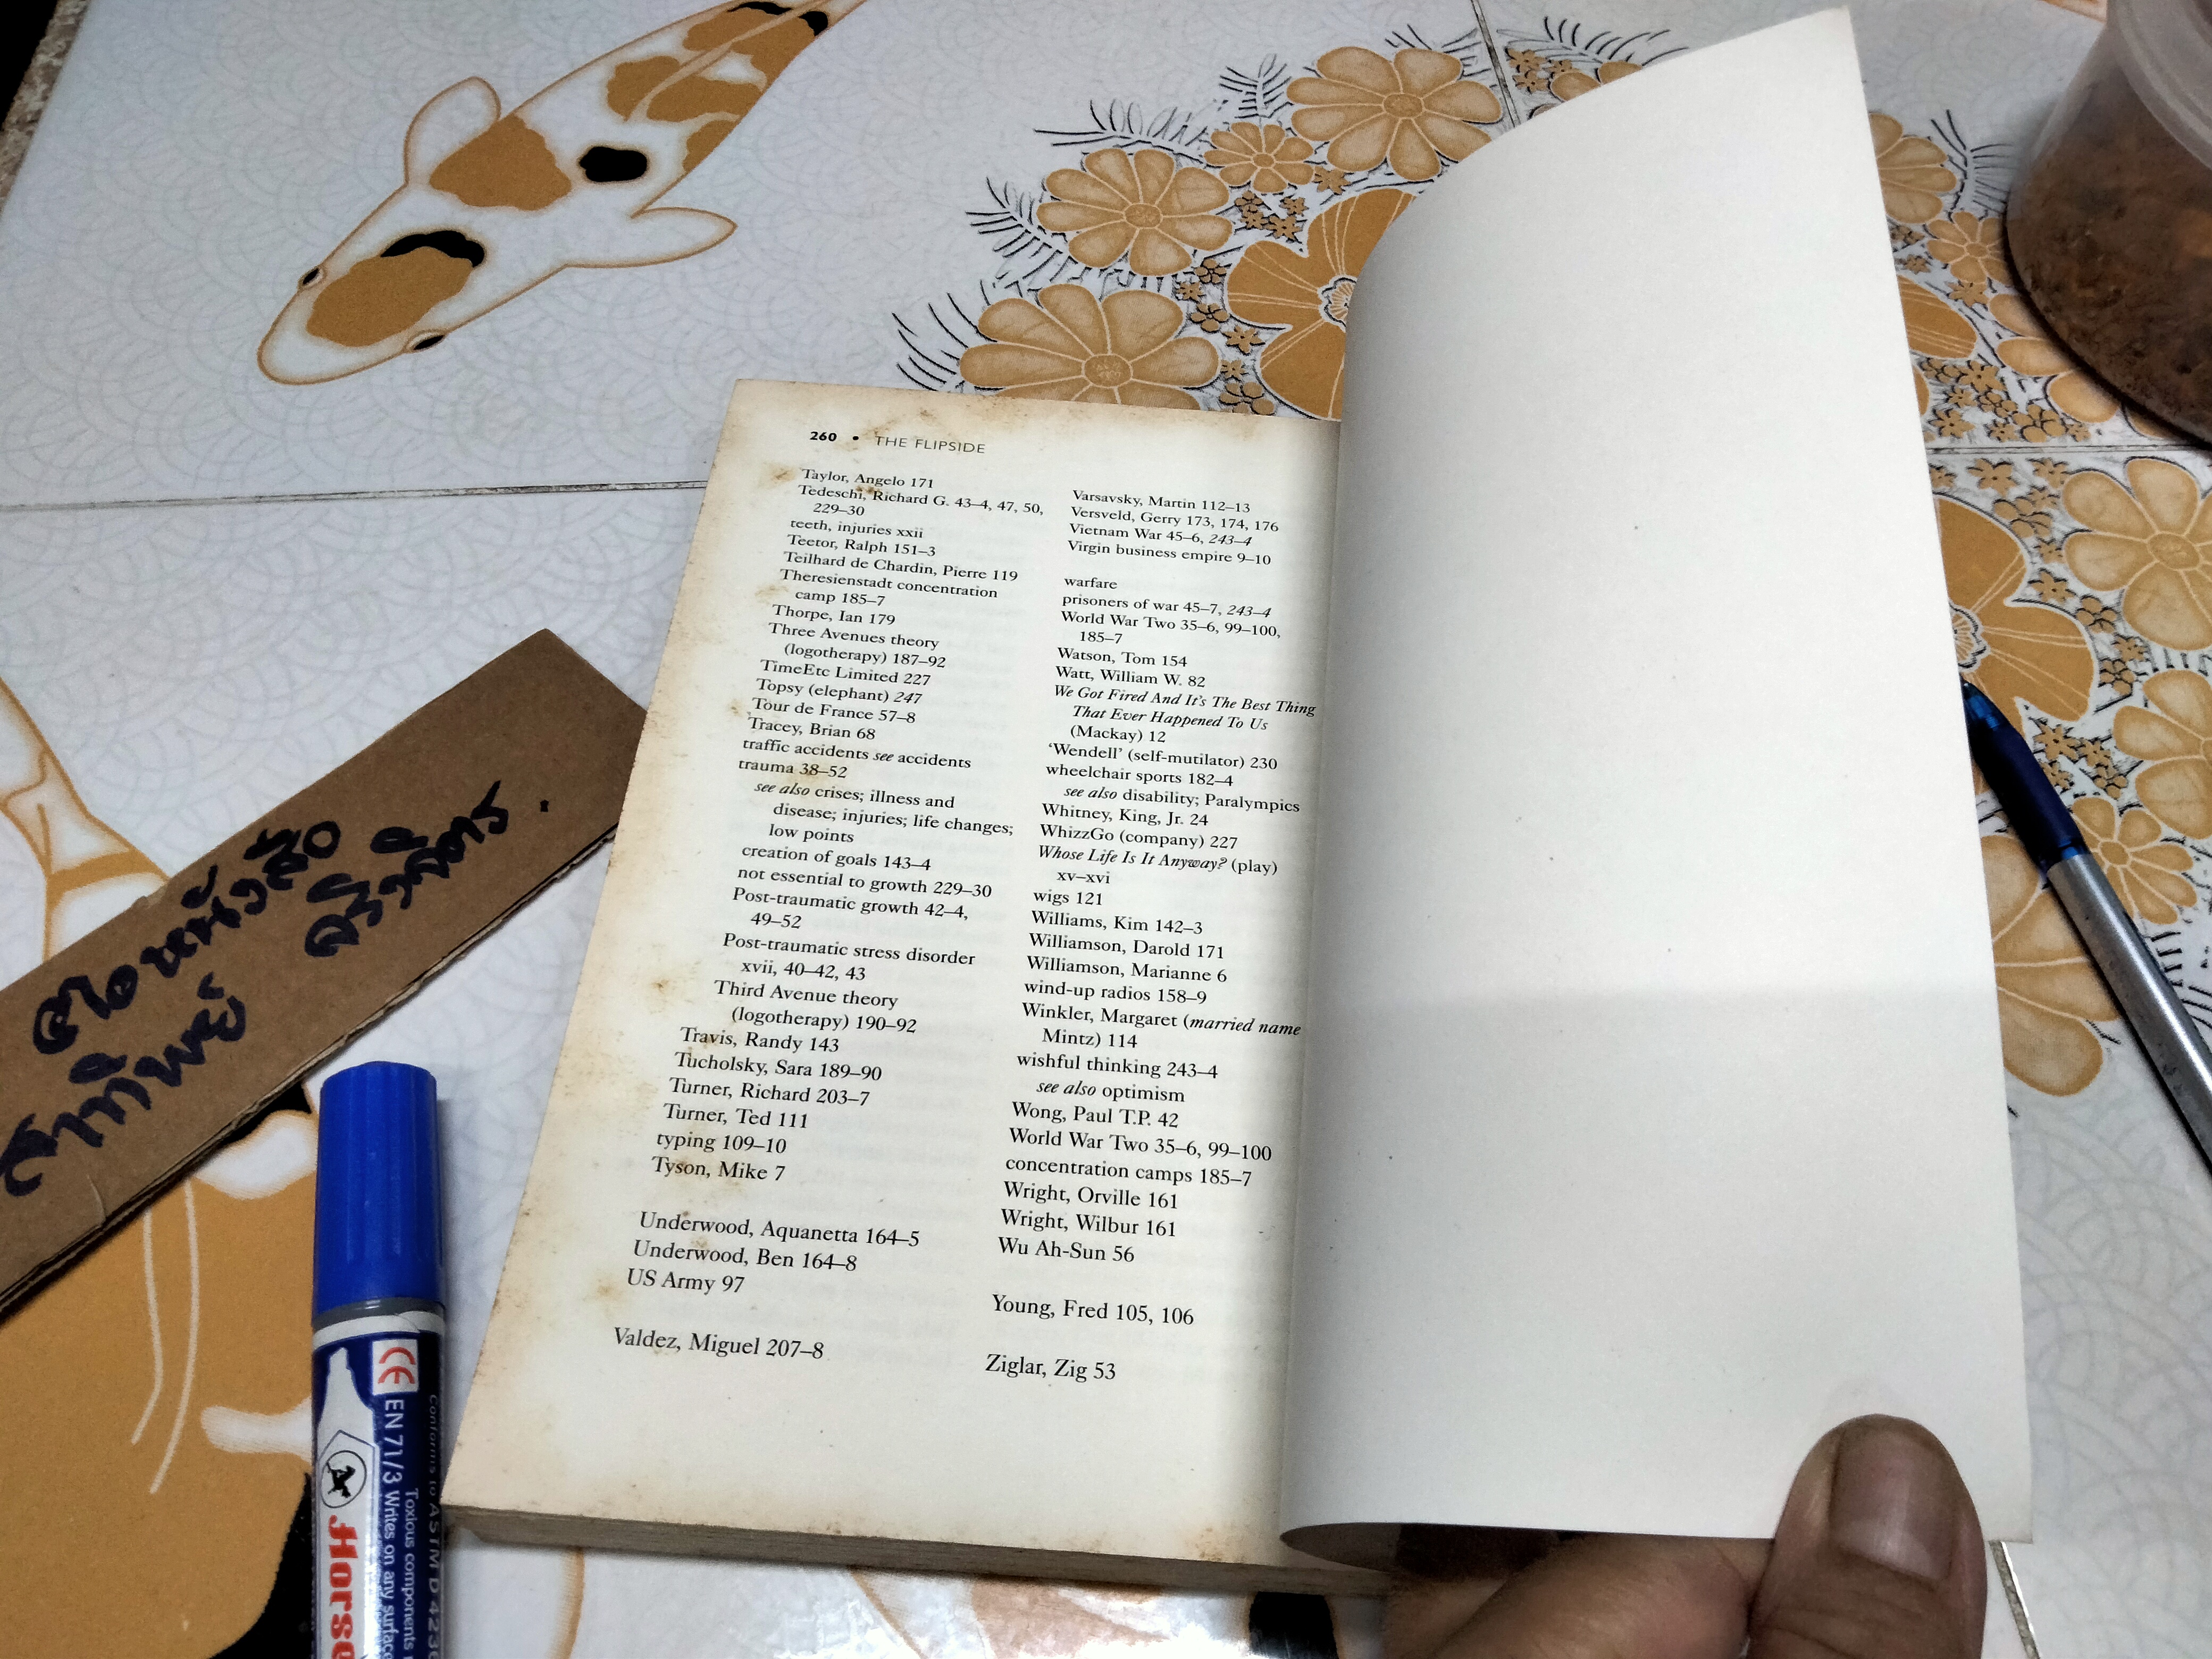 260 • THE FLIPSIDE
Taylor, Angelo 171
Tedeschi, Richard G. 43–4, 47, 50,
229–30
teeth, injuries xxii
Teetor, Ralph 151–3
Teilhard de Chardin, Pierre 119
Theresienstadt concentration
camp 185–7
Thorpe, Ian 179
Three Avenues theory
(logotherapy) 187–92
TimeEtc Limited 227
Topsy (elephant) 247
Tour de France 57–8
Tracey, Brian 68
traffic accidents see accidents
trauma 38–52
see also crises; illness and
disease; injuries; life changes;
low points
creation of goals 143–4
not essential to growth 229–30
Post-traumatic growth 42–4,
49–52
Post-traumatic stress disorder
xvii, 40–42, 43
Third Avenue theory
(logotherapy) 190–92
Travis, Randy 143
Tucholsky, Sara 189–90
Turner, Richard 203–7
Turner, Ted 111
typing 109–10
Tyson, Mike 7
Underwood, Aquanetta 164–5
Underwood, Ben 164–8
US Army 97
Valdez, Miguel 207–8
Varsavsky, Martin 112–13
Versveld, Gerry 173, 174, 176
Vietnam War 45–6, 243–4
Virgin business empire 9–10
warfare
prisoners of war 45–7, 243–4
World War Two 35–6, 99–100,
185–7
Watson, Tom 154
Watt, William W. 82
We Got Fired And It's The Best Thing
That Ever Happened To Us
(Mackay) 12
'Wendell' (self-mutilator) 230
wheelchair sports 182–4
see also disability; Paralympics
Whitney, King, Jr. 24
WhizzGo (company) 227
Whose Life Is It Anyway? (play)
xv–xvi
wigs 121
Williams, Kim 142–3
Williamson, Darold 171
Williamson, Marianne 6
wind-up radios 158–9
Winkler, Margaret (married name
Mintz) 114
wishful thinking 243–4
see also optimism
Wong, Paul T.P. 42
World War Two 35–6, 99–100
concentration camps 185–7
Wright, Orville 161
Wright, Wilbur 161
Wu Ah-Sun 56
Young, Fred 105, 106
Ziglar, Zig 53
CE
EN 71/3 Writes on any surface
Toxious components
Conforms to ASTM D 423
Horse